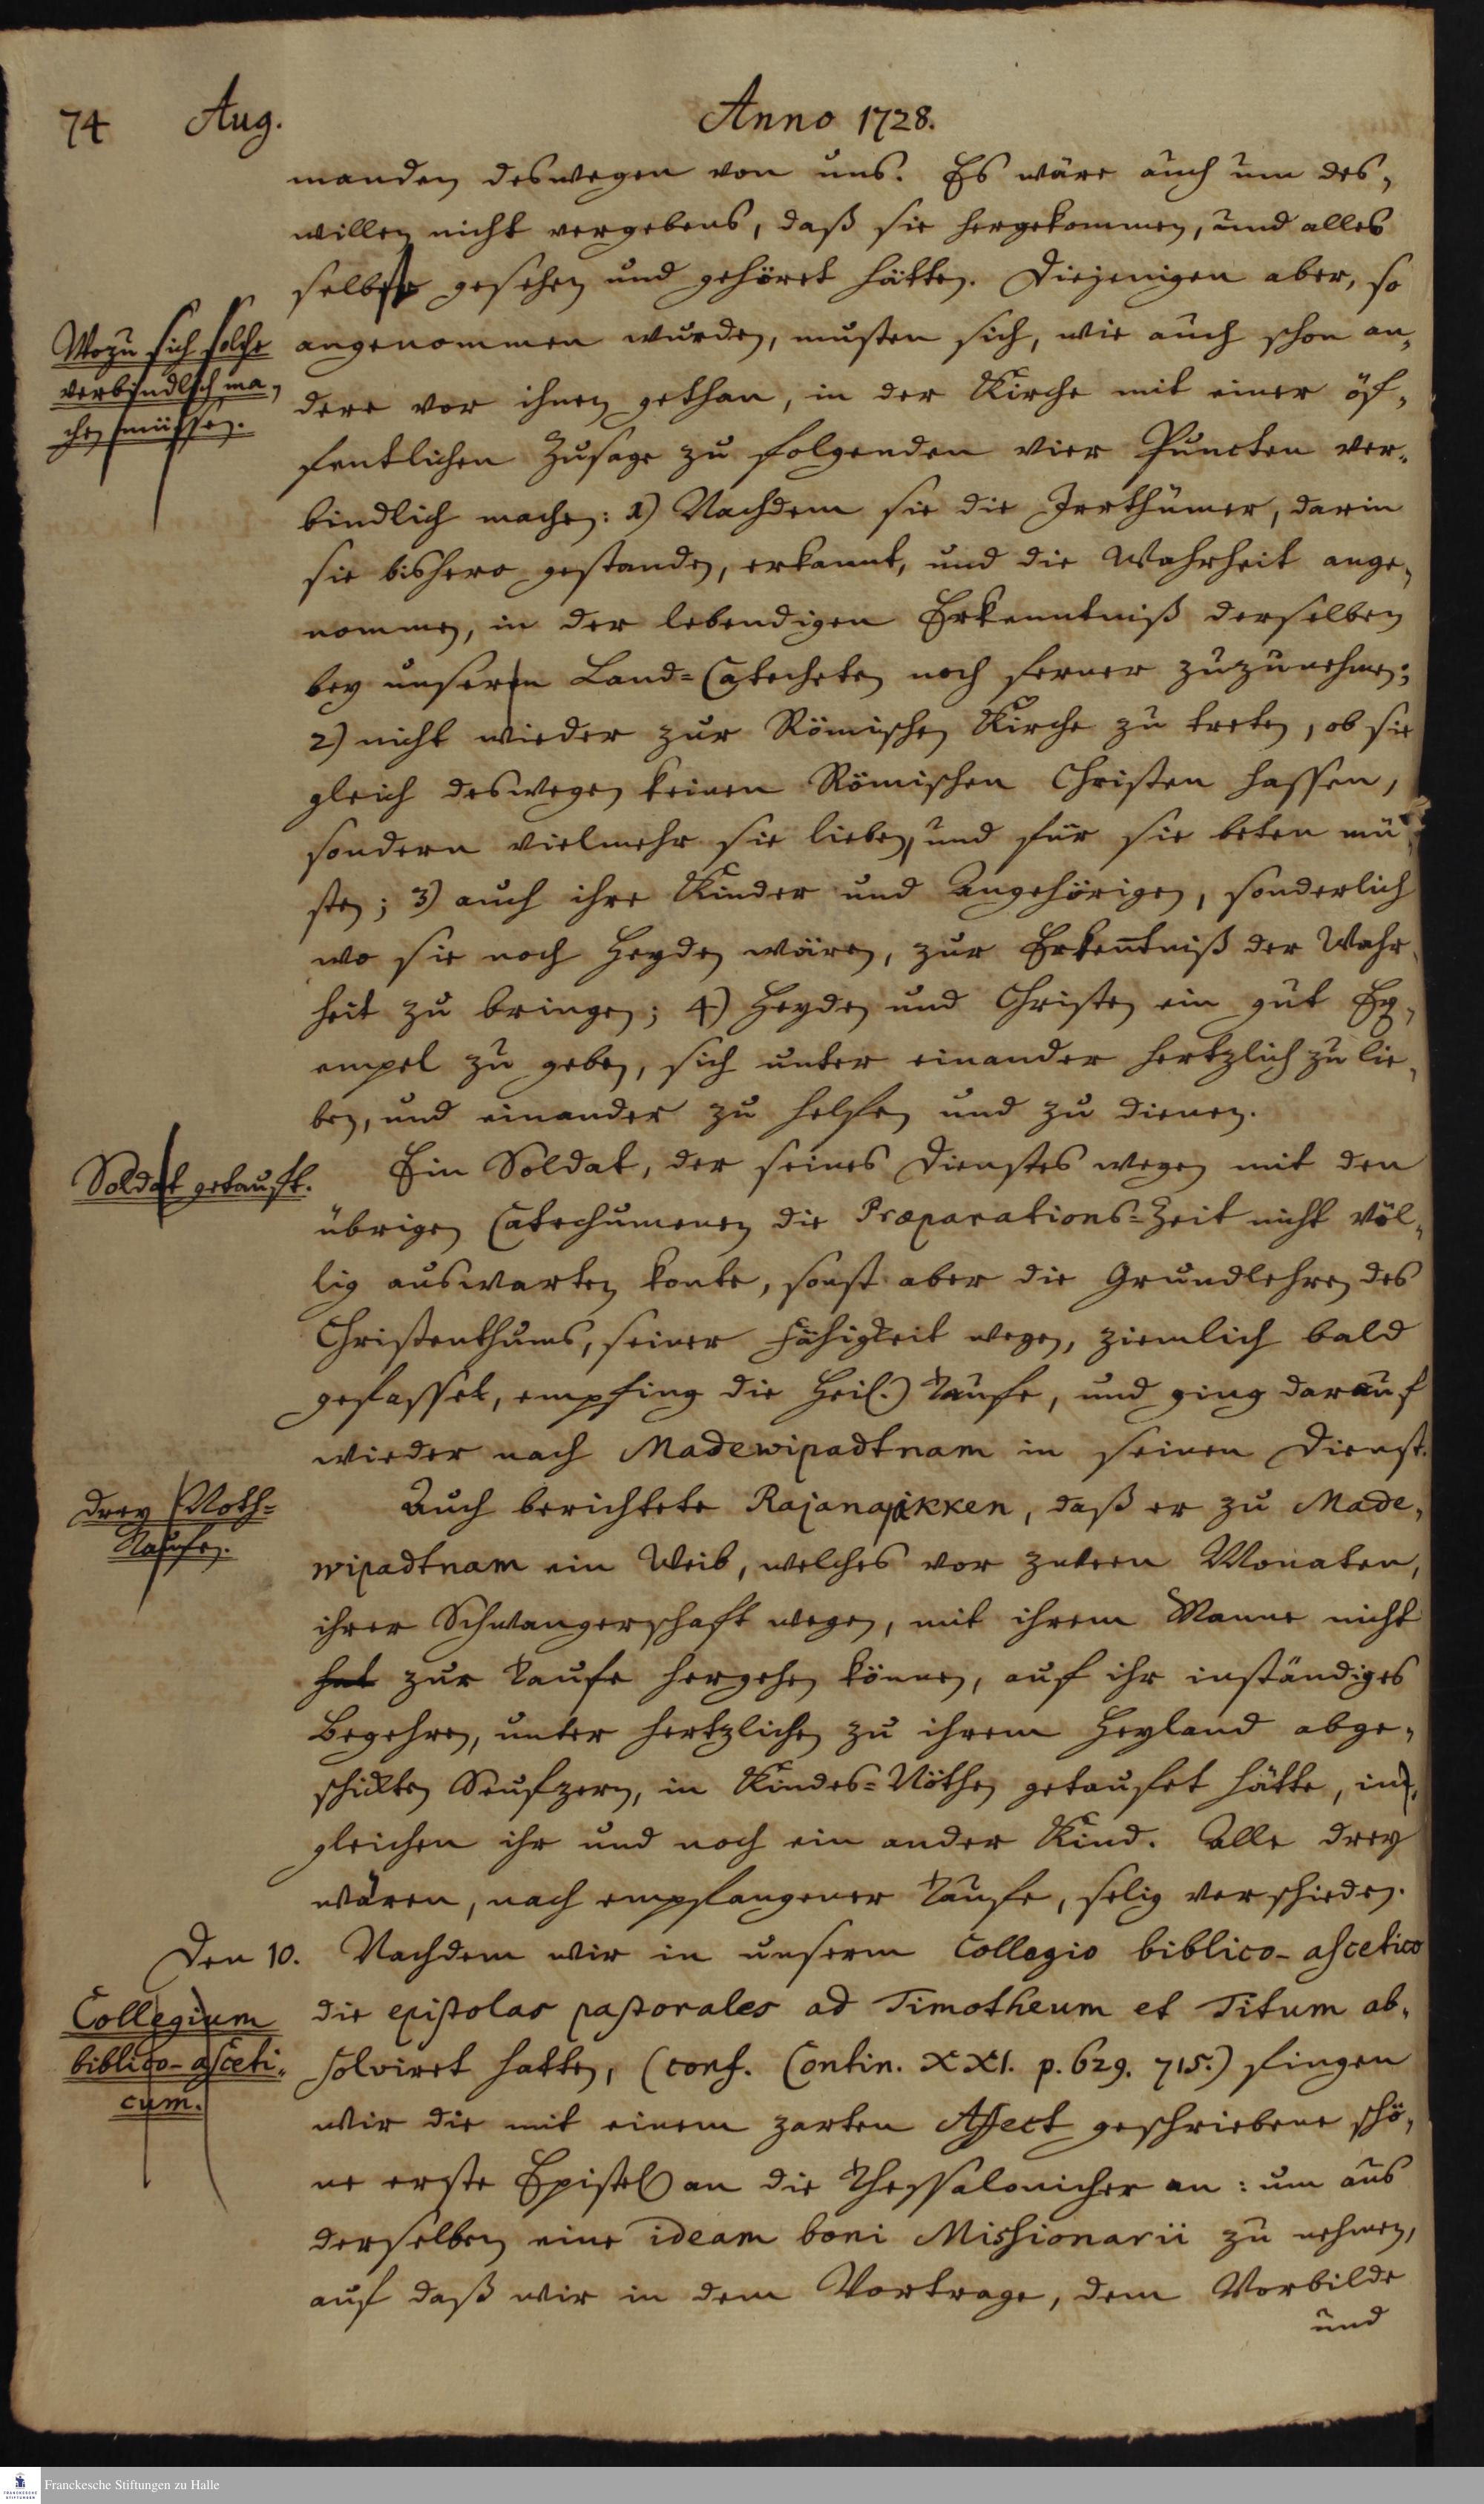 74 Aug. Anno 1728.
manden deswegen von uns. Es wäre auch um des,
willen nicht vergebens, daß sie hergekommen, und alles
selbst gesehen und gehöret hätten. Diejenigen aber, so
Wozu sich solche
verbindlich ma,
chen müssen.
angenommen wurden, musten sich, wie auch schon an,
dere vor ihnen gethan, in der Kirche mit einer öf,
fentlichen Zusage zu folgenden vier Puncten ver,
bindlich machen: 1) Nachdem sie die Irrthümer, darin
sie bishero gestanden, erkannt, und die Wahrheit ange,
nommen, in der lebendigen Erkenntniß derselben
bey unserm Land-Catecheten noch ferner zuzunehmen;
2) nicht wieder zur Römischen Kirche zu treten, ob sie
gleich deswegen keinen Römischen Christen hassen,
sondern vielmehr sie lieben, und für sie beten mü,
sten; 3) auch ihre Kinder und Angehörigen, sonderlich
wo sie noch Heyden wären, zur Erkentniß der Wahr,
heit zu bringen; 4) Heyden und Christen ein gut Ex,
empel zu geben, sich unter einander hertzlich zu lie,
ben, und einander zu helfen und zu dienen.
Soldat getauft.
Ein Soldat, der seines Dienstes wegen mit den
übrigen Catechumenen die Præparations-Zeit nicht völ,
lig auswarten konte, sonst aber die Grundlehren des
Christenthums, seiner Fähigkeit wegen, ziemlich bald
gefasset, empfing die Heil.) Taufe, und ging darauf
wieder nach Madewipadtnam in seinen Dienst.
Drey Noth-
Taufen.
Auch berichtete Rajanajikken, daß er zu Made,
wipadtnam ein Weib, welches vor zween Monaten,
ihrer Schwangerschaft wegen, mit ihrem Manne nicht
hat zur Taufe hergehen können, auf ihr inständiges
Begehren, unter hertzlichen zu ihrem Heyland abge,
schickten Seufzern, in Kindes-Nöthen getaufet hätte, im,
gleichen ihr und noch ein ander Kind. Alle drey
wären, nach empfangener Taufe, selig verschieden.
Den 10. Nachdem wir in unserm Collegio biblico-ascetico
Collegium
biblico-asceti,
cum.
die epistolas pastorales ad Timotheum et Titum ab,
solviret hatten, (conf. Contin. XXI. p. 629. 715.) fingen
wir die mit einem zarten Affect geschriebene schö,
ne erste Epistel an die Thessalonicher an: um aus
derselben eine ideam boni Missionarii zu nehmen,
auf daß wir in dem Vortrage, dem Vorbilde
und
Franckesche Stiftungen zu Halle